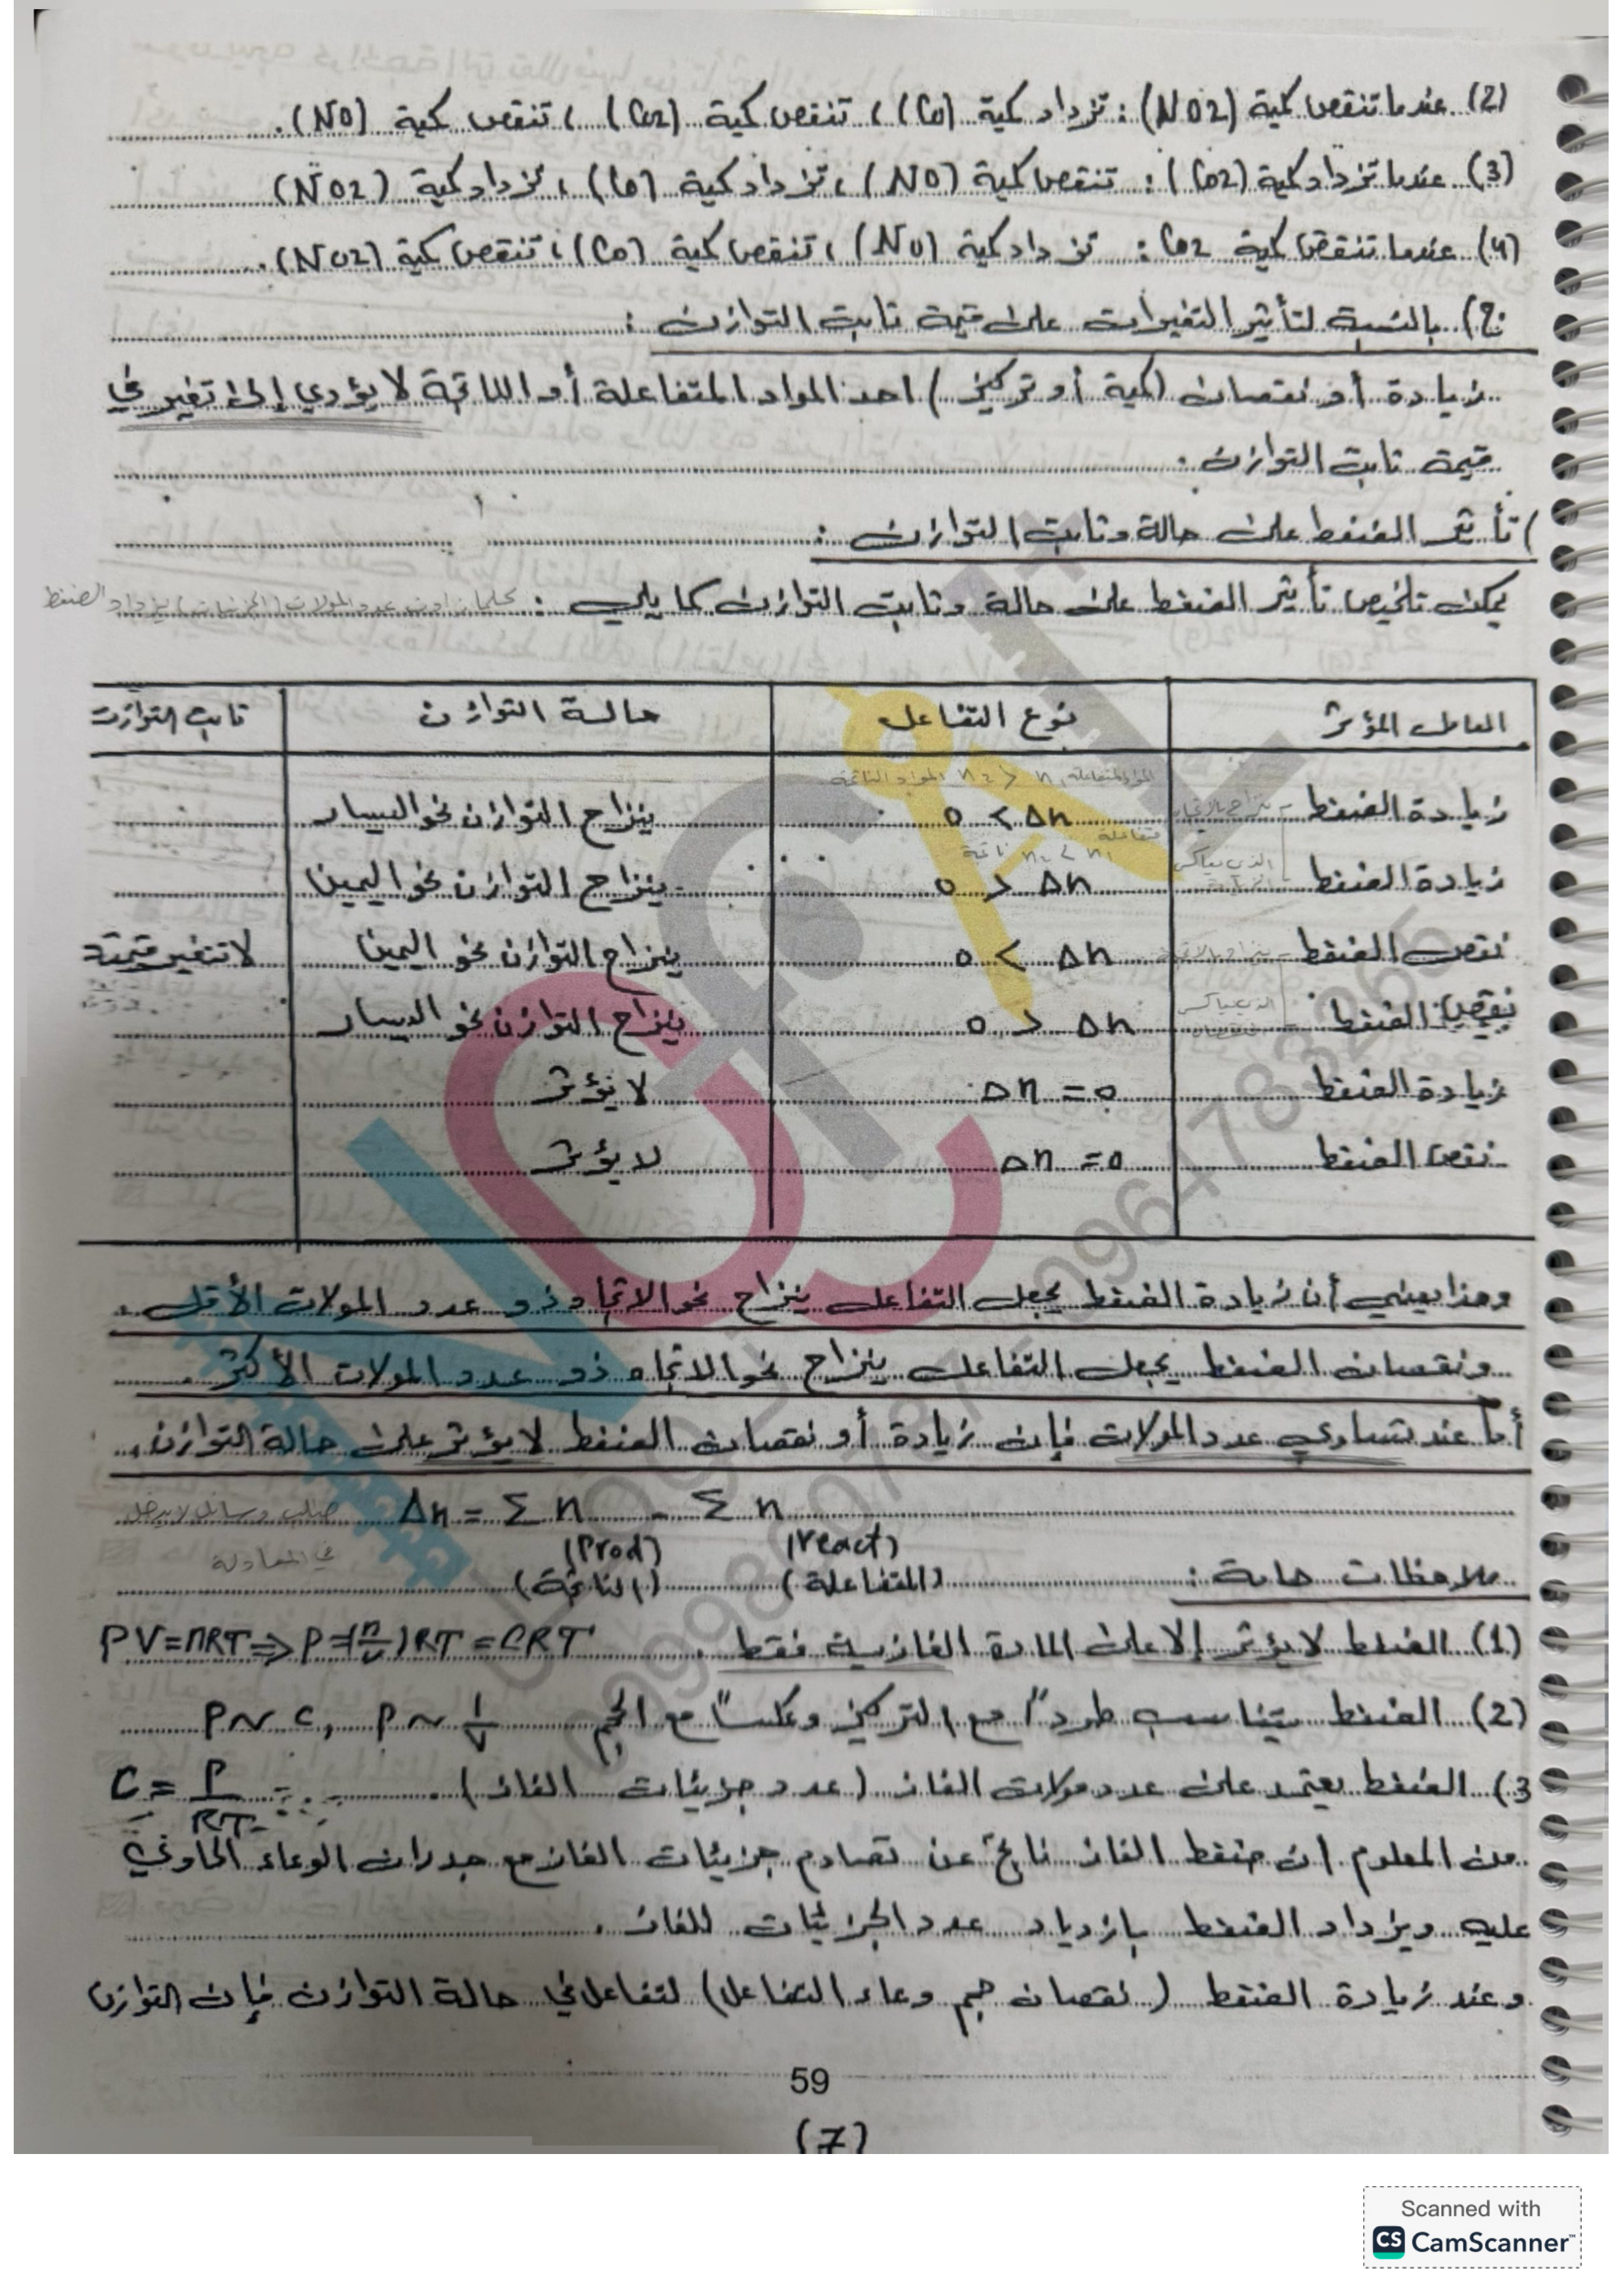 (2) عندما تنقص كمية (NO2) : تزداد كمية (CO) ، تنقص كمية (CO2) ، تنقص كمية (NO).
(3) عندما تزداد كمية (CO2) : تنقص كمية (NO) ، تزداد كمية (CO) ، تزداد كمية (NO2)
(4) عندما تنقص كمية CO2 : تزداد كمية (NO) ، تنقص كمية (CO) ، تنقص كمية (NO2).
ج) بالنسبة لتأثير التغيرات على قيمة ثابت التوازن :
زيادة أو نقصان (كمية أو تركيز) احد المواد المتفاعلة أو الناتجة لا يؤدي إلى تغير في
قيمة ثابت التوازن .
) تأثير الضغط على حالة وثابت التوازن :
يمكن تلخيص تأثير الضغط على حالة وثابت التوازن كما يلي : كلما زادت عدد المولات (الجزيئات) يزداد الضغط
العامل المؤثر نوع التفاعل حالة التوازن ثابت التوازن
المواد المتفاعلة n1 < n2 المواد الناتجة
زيادة الضغط ينزاح بالاتجاه 0 < Δn ينزاح التوازن نحو اليسار
متفاعلة n1 > n2 ناتجة
زيادة الضغط الذي يعاكس 0 > Δn ينزاح التوازن نحو اليمين
نقص الضغط ينزاح بالاتجاه 0 < Δn ينزاح التوازن نحو اليمين لا تتغير قيمته
نقص الضغط الذي يعاكس 0 > Δn ينزاح التوازن نحو اليسار
زيادة الضغط Δn = 0 لا يؤثر
نقص الضغط Δn = 0 لا يؤثر
وهذا يعني أن زيادة الضغط يجعل التفاعل ينزاح نحو الاتجاه ذو عدد المولات الأقل .
ونقصان الضغط يجعل التفاعل ينزاح نحو الاتجاه ذو عدد المولات الأكثر .
أما عند تساوي عدد المولات فإن زيادة أو نقصان الضغط لا يؤثر على حالة التوازن .
Δn = Σ n - Σ n صلب وسائل لا يدخل
(Prod) (react) في المعادلة
ملاحظات هامة : (المتفاعلة) (الناتجة)
(1) الضغط لا يؤثر إلا على المادة الغازية فقط . PV=nRT ⇒ P=(n/V)RT = CRT
(2) الضغط يتناسب طرداً مع التركيز وعكساً مع الحجم P~C, P~1/V
3) الضغط يعتمد على عدد مولات الغاز (عدد جزيئات الغاز) . C = P/RT
من المعلوم ان ضغط الغاز ناتج عن تصادم جزيئات الغاز مع جدران الوعاء الحاوي
عليه ويزداد الضغط بازدياد عدد الجزيئات للغاز .
وعند زيادة الضغط (نقصان حجم وعاء التفاعل) لتفاعل في حالة التوازن فإن التوازن
59
(7)
Scanned with
CS CamScanner